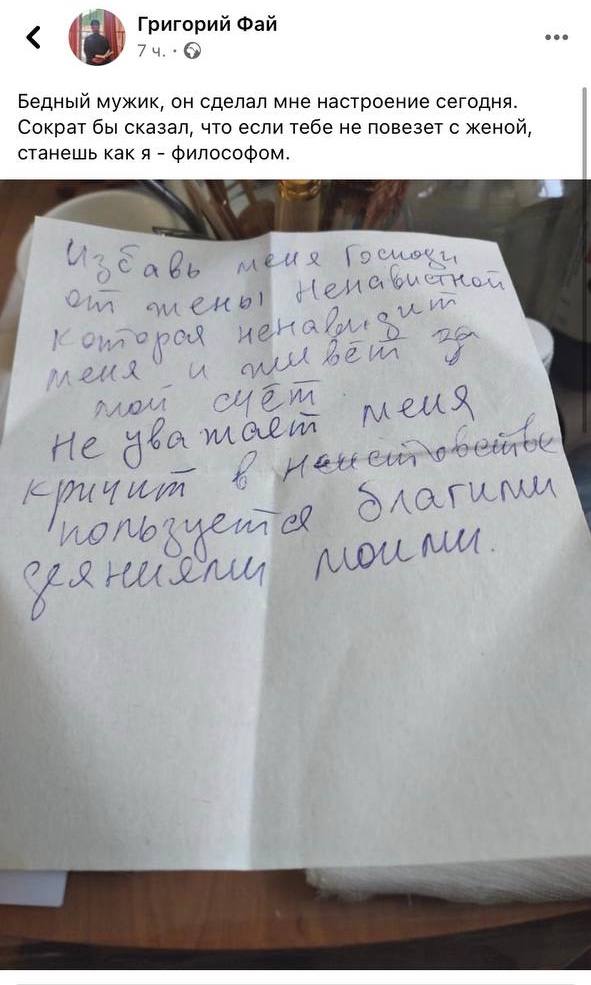 Григорий Фай
7 ч. ·
Бедный мужик, он сделал мне настроение сегодня.
Сократ бы сказал, что если тебе не повезет с женой,
станешь как я - философом.
Избавь меня Господи
от жены Ненавистной
которая ненавидит
меня и живёт за
мой счёт
Не уважает меня
кричит в неистовстве
пользуется благими
деяниями моими.